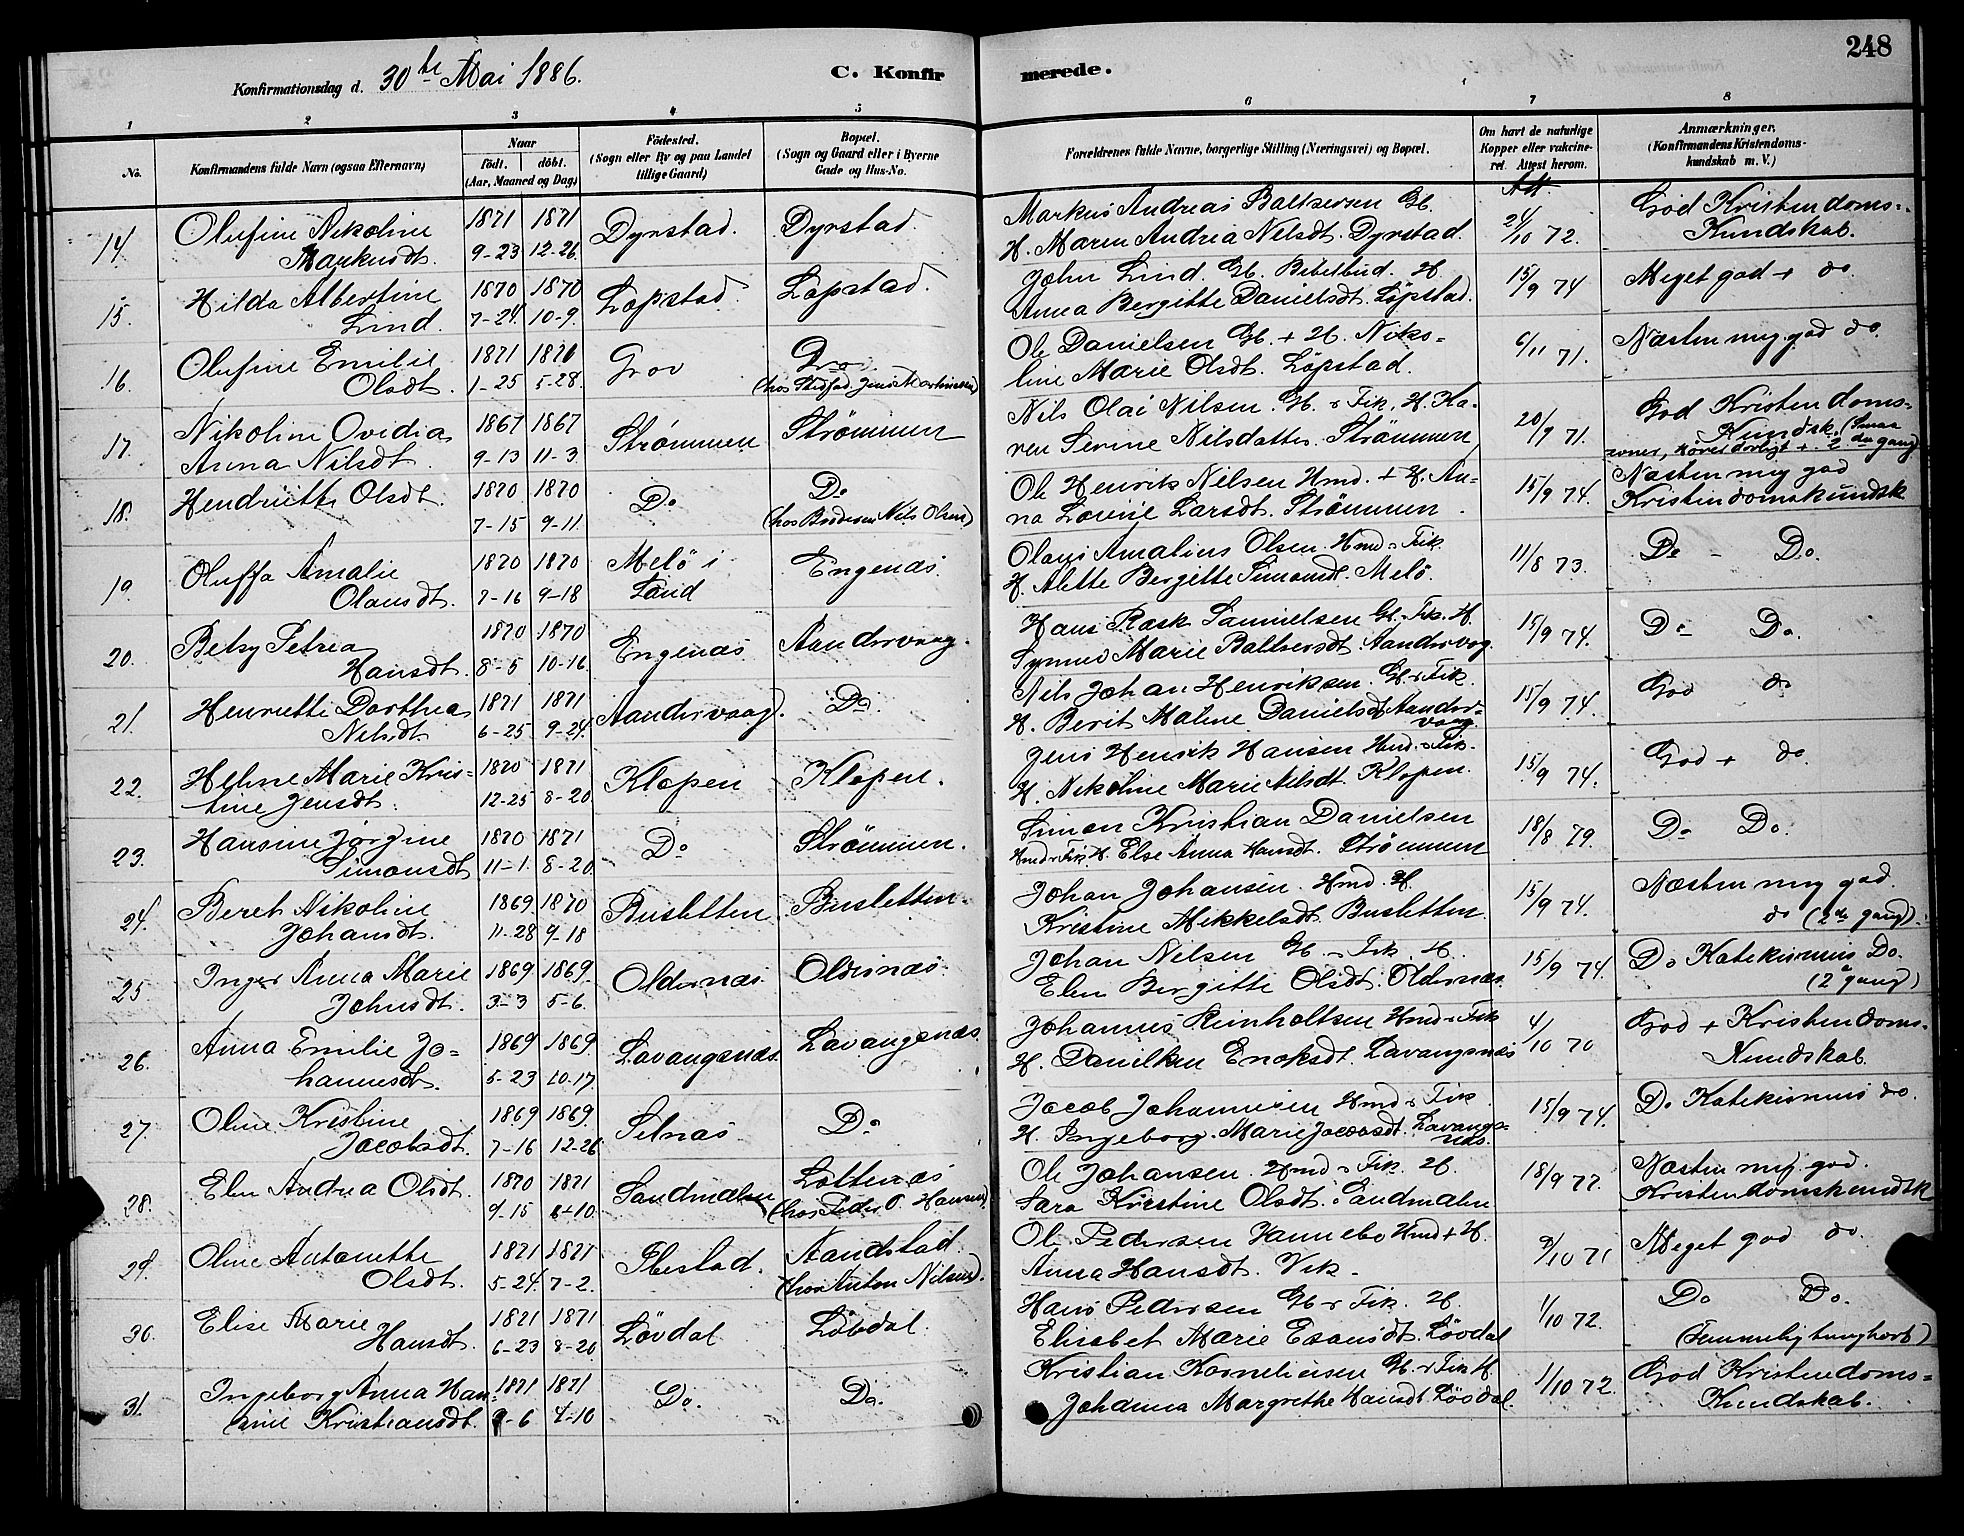 248
Konfirmationsdag d. 30te Mai 1886.
C. Konfirmerede.
1 2 3 4 5 6 7 8
No.
Konfirmandens fulde Navn (ogsaa Efternavn)
Naar
födt. döbt.
(Aar, Maaned og Dag)
Födested.
(Sogn eller By og paa Landet
tillige Gaard)
Bopæl.
(Sogn og Gaard eller i Byerne
Gade og Hus-No.
Forældrenes fulde Navne, borgerlige Stilling (Næringsvei) og Bopæl.
Om havt de naturlige
Kopper eller vakcine-
ret. Attest herom.
Anmærkninger.
(Konfirmandens Kristendoms-
kundskab m. V.)
Att.
14. Olufine Nikoline 1871 1871 Dyrstad. Dyrstad. Markus Andreas Baltsersen Gb. 24/10 72. God Kristendoms-
Markusdt. 9-23 12-26 H. Maren Andrea Nilsdt. Dyrstad. Kundskab.
15. Hilda Albertine 1870 1870 Løpstad. Løpstad. John Lind. Gb. Bibelbud. H. 15/9 74 Meget god + do.
Lind. 7-24 10-9. Anna Bergitte Danielsdt. Løpstad.
16. Olufine Emilie 1871 1871 Grov Do. Ole Danielsen Gb. + H. Niko- 6/11 71. Næsten mg. god do.
Olsdt. 1-25 5-28. (hos Stedfad. Jens Martinsen) line Marie Olsdt. Løpstad.
17. Nikoline Ovidia 1867 1867 Strømmen Strømmen Nils Olai Nilsen. Gb. & Fisk. H. Ka- 20/9 71. God Kristendoms-
Anna Nilsdt. 9-13 11-3. ren Serine Nilsdatter. Strømmen Kundsk. (Smaa
evner, hører daarligt + 2den gang)
18. Hendriette Olsdt 1870 1870 Do Do Ole Henrik Nilsen Hmd. + H. An- 15/9 74. Næsten mg god
7-15 9-11. (hos Broderen Nils Olsen) na Lovise Larsdt. Strømmen. Kristendomskundsk
19. Oluffa Amalie 1870 1870 Melö i Engenæs. Olaus Amalius Olsen. Hmd & Fisk. 11/8 73. Do - Do.
Olausdt. 7-16 9-18 Sand H. Alette Bergitte Simonsdt. Melö.
20. Betsy Petrea 1870 1870 Engenæs Aandervaag. Hans Rask Samuelsen Gb. & Fisk. H. 15/9 74. Do Do.
Hansdt. 8-5 10-16. Synnev Marie Baltsersdt. Aandervag.
21. Henriette Dorthea 1871 1871 Aandervaag. Do. Nils Johan Henriksen. Gb & Fisk. 15/9 74. God do
Nilsdt. 6-25 9-24. H. Berit Maline Danielsdt. Aander-
vaag.
22. Heline Marie Kris- 1870 1871 Klopen Klopen. Jens Henrik Hansen Hmd. & Fisk. 15/9 74. God + do.
tine Jensdt. 12-25 8-20 H. Nikoline Marie Nilsdt. Klopen.
23. Hansine Jørgine 1870 1871 Do Strømmen. Simon Kristian Danielsen 18/8 79. Do Do.
Simonsdt 11-1. 8-20. Hmd & Fisk. H. Else Anna Hansdt. Strømmen
24. Beret Nikoline 1869 1870 Busletten Busletten. Johan Johansen. Hmd. H. 15/9 74. Næsten mg god.
Johansdt. 11-28 9-18 Kristine Mikkelsdt. Busletten. do (2de gang).
25 Inger Anna Marie 1869 1869. Oldernæs Oldernæs. Johan Nilsen Gb. & Fisk. H. 15/9 74. Do Katekismus Do.
Johnsdt. 3-3 5-6. Elen Bergitte Olsdt. Oldernæs. (2 gang)
26. Anna Emilie Jo- 1869 1869. Lavangsnæs Lavangsnæs. Johannes Reinholtsen Hmd & Fisk 4/10 70 God + Kristendoms-
hannesdt. 5-23 10-17. H. Danelken Enoksdt. Lavangsnæs Kundskab.
27. Oline Kristine 1869 1869. Selnæs Do. Jacob Johannesen Hmd & Fisk. 15/9 74. Do Katekismus do.
Jacobsdt. 7-16 12-26 H. Ingeborg Marie Jacobsdt. Lavangs-
næs.
28. Elen Andrea Olsdt. 1870 1871 Sandmælen Lottenæs Ole Johansen. Hmd & Fisk. H. 18/9 77. Næsten mg. god.
9-15 6-10. (hos Peder O. Hansen). Sara Kristine Olsdt. Sandmælen Kristendomskundsk
29. Oline Antonette 1871 1871 Ibestad. Aandstad. Ole Pedersen Hannebo Hmd + H. 9/10 71 Meget god do.
Olsdt. 5-24. 7-2. (hos Anton Nilsen). Anna Hansdt. Vik.
30. Elise Marie 1871 1871 Løvdal Løvdal. Hans Pedersen Gb & Fisk. H. 1/10 72. Do Do.
Hansdt. 6-23 8-20 Elisabet Marie Esaiasdt. Løvdal (Temmelig tunghørt)
31. Ingeborg Anna Han- 1871 1871 Do. Do. Kristian Korneliusen Gb. & Fisk H. 1/10 72. God Kristendoms-
sine Kristiansdt. 9-6 4-10 Johanna Margrethe Hansdt. Løvdal. Kundskab.